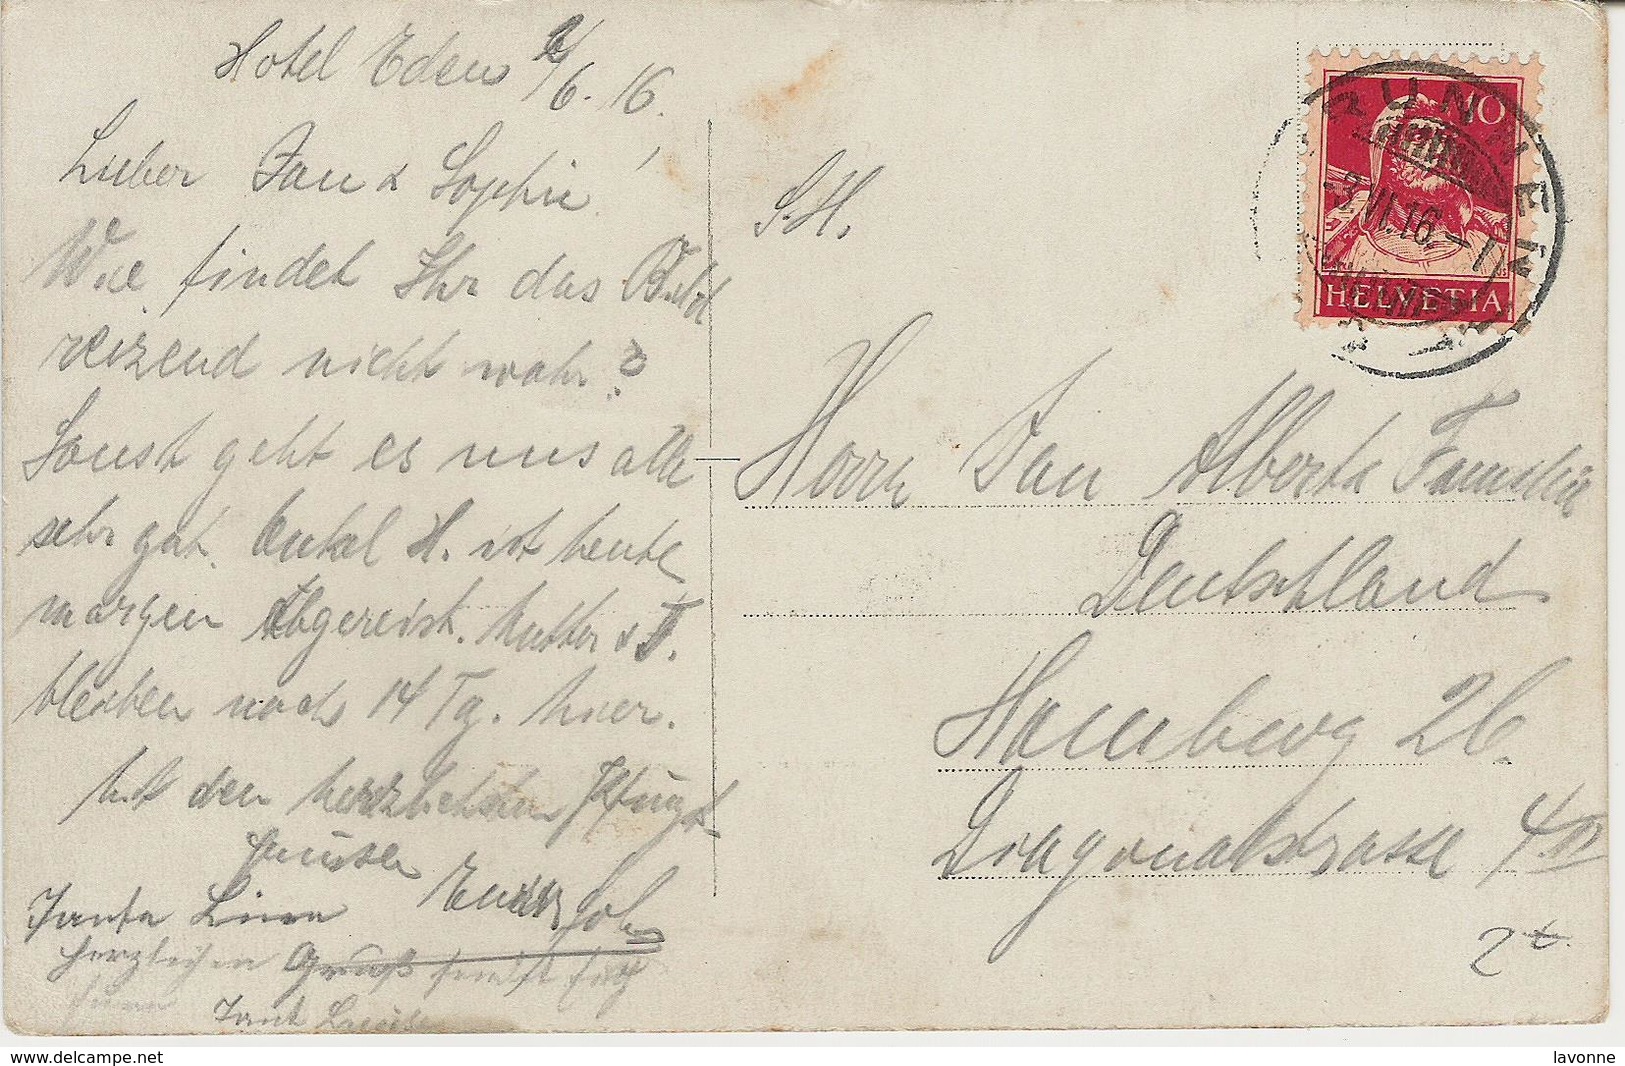 Hotel Eden 2/6. 16.
Lieber Jan & Sophie!
Wie findet Ihr das Bild
reizend nicht wahr?
Sonst geht es uns alle
sehr gut. Onkel H. ist heute
morgen Abgereist. Mutter & T.
bleiben noch 14 Tg. hier.
Mit den herzlichsten Pfingst
Grüssen
Tante Lina
herzlichen Gruß
Tante
S. H.
Herrn Jan Alberts
Deutschland
Hamburg 26.
Dragonalstrasse
BRUNNEN
10
-3.VI.16.-11
HELVETIA
delcampe.net
lavonne